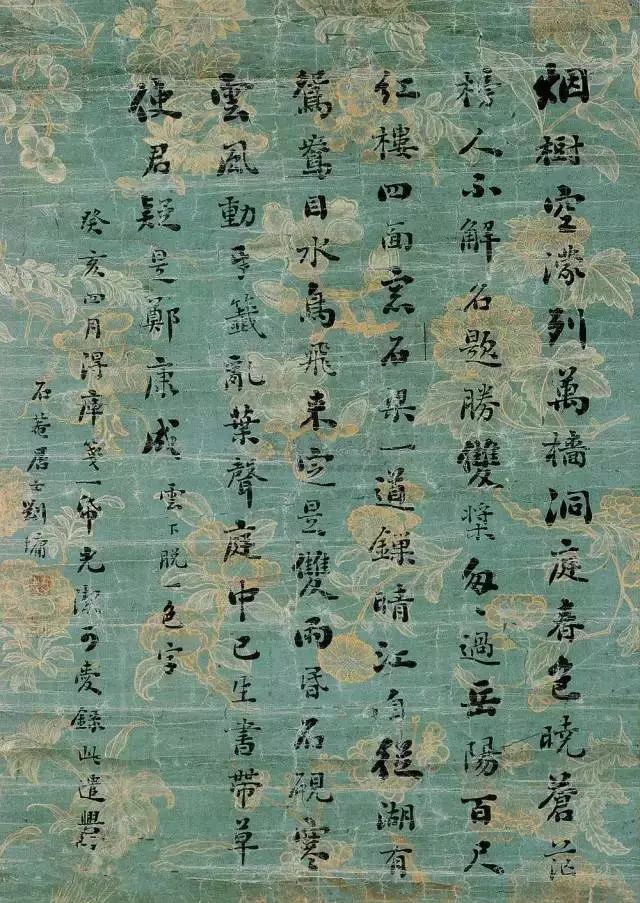 烟樹空濛列萬檣洞庭春色曉蒼茫
榜人不解名題勝雙槳匆〻過岳陽百尺
紅樓四面窓石梁一道鎖晴江自從湖有
鴛鴦目水鳥飛来定是雙雨昏石硯寒
雲風動牙籤亂葉聲庭中已生書帶草
使君疑是鄭康成 雲下脱一色字
癸亥四月得庫箋一帋光潔可愛錄此遣興
石菴居士劉墉